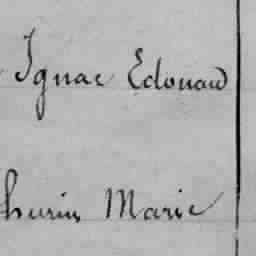 Ignac Edouard
thurin Marie